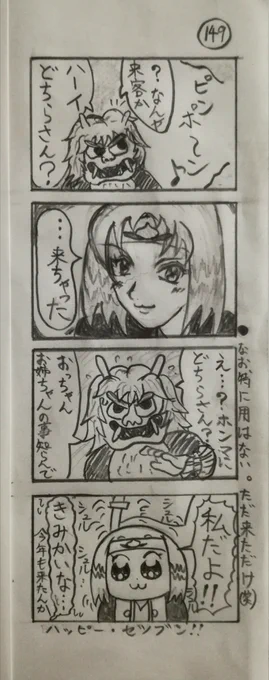 149
ピンポ〜ン♪
？なんや
来客か
ハーイ
どちらさん？
…来ちゃった
え…？ホンマに
どちらさん？
おっちゃん
お姉ちゃんの事知らんで
私だよ！！
シュルシュル
きみかいな…
今年も来たんか
ハッピー・セツブン！！
●なお特に用はない。ただ来ただけ(笑)